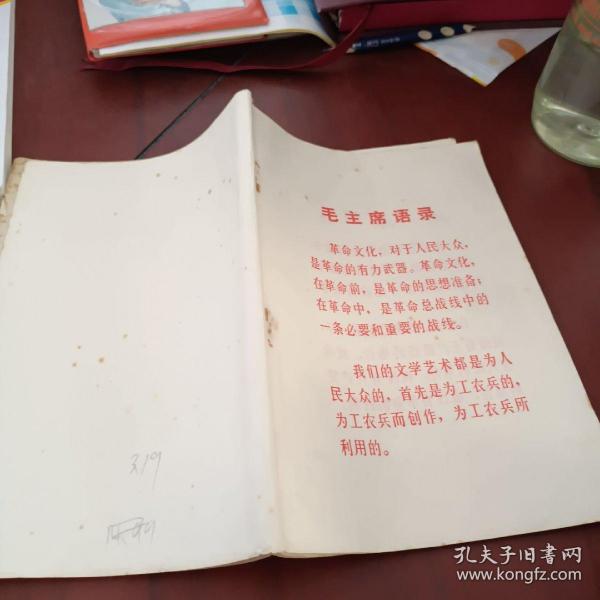 毛主席语录
革命文化，对于人民大众，
是革命的有力武器。革命文化，
在革命前，是革命的思想准备；
在革命中，是革命总战线中的
一条必要和重要的战线。
我们的文学艺术都是为人
民大众的，首先是为工农兵的，
为工农兵而创作，为工农兵所
利用的。
孔夫子旧书网
www.kongfz.com